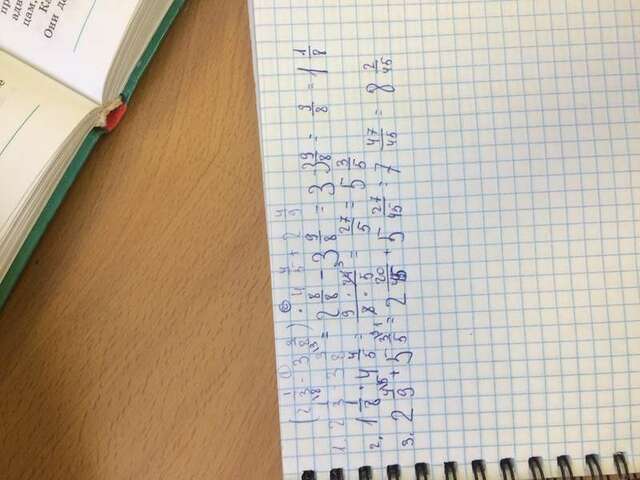 пр
адв
цам,
Ка
Они де
(2 1/3 - 3 3/8) · 4 4/5 + 2 4/9
1. 2 1/3 - 3 3/8 = 2 8/8 - 3 9/8 = 3 - 3 9/8 = 9/8 = 1 1/8
2. 1 1/8 · 4 4/5 = 9 · 24/8 · 5 = 27/5 = 5 3/5
3. 2 4/9 + 5 3/5 = 2 20/45 + 5 27/45 = 7 47/45 = 8 2/45